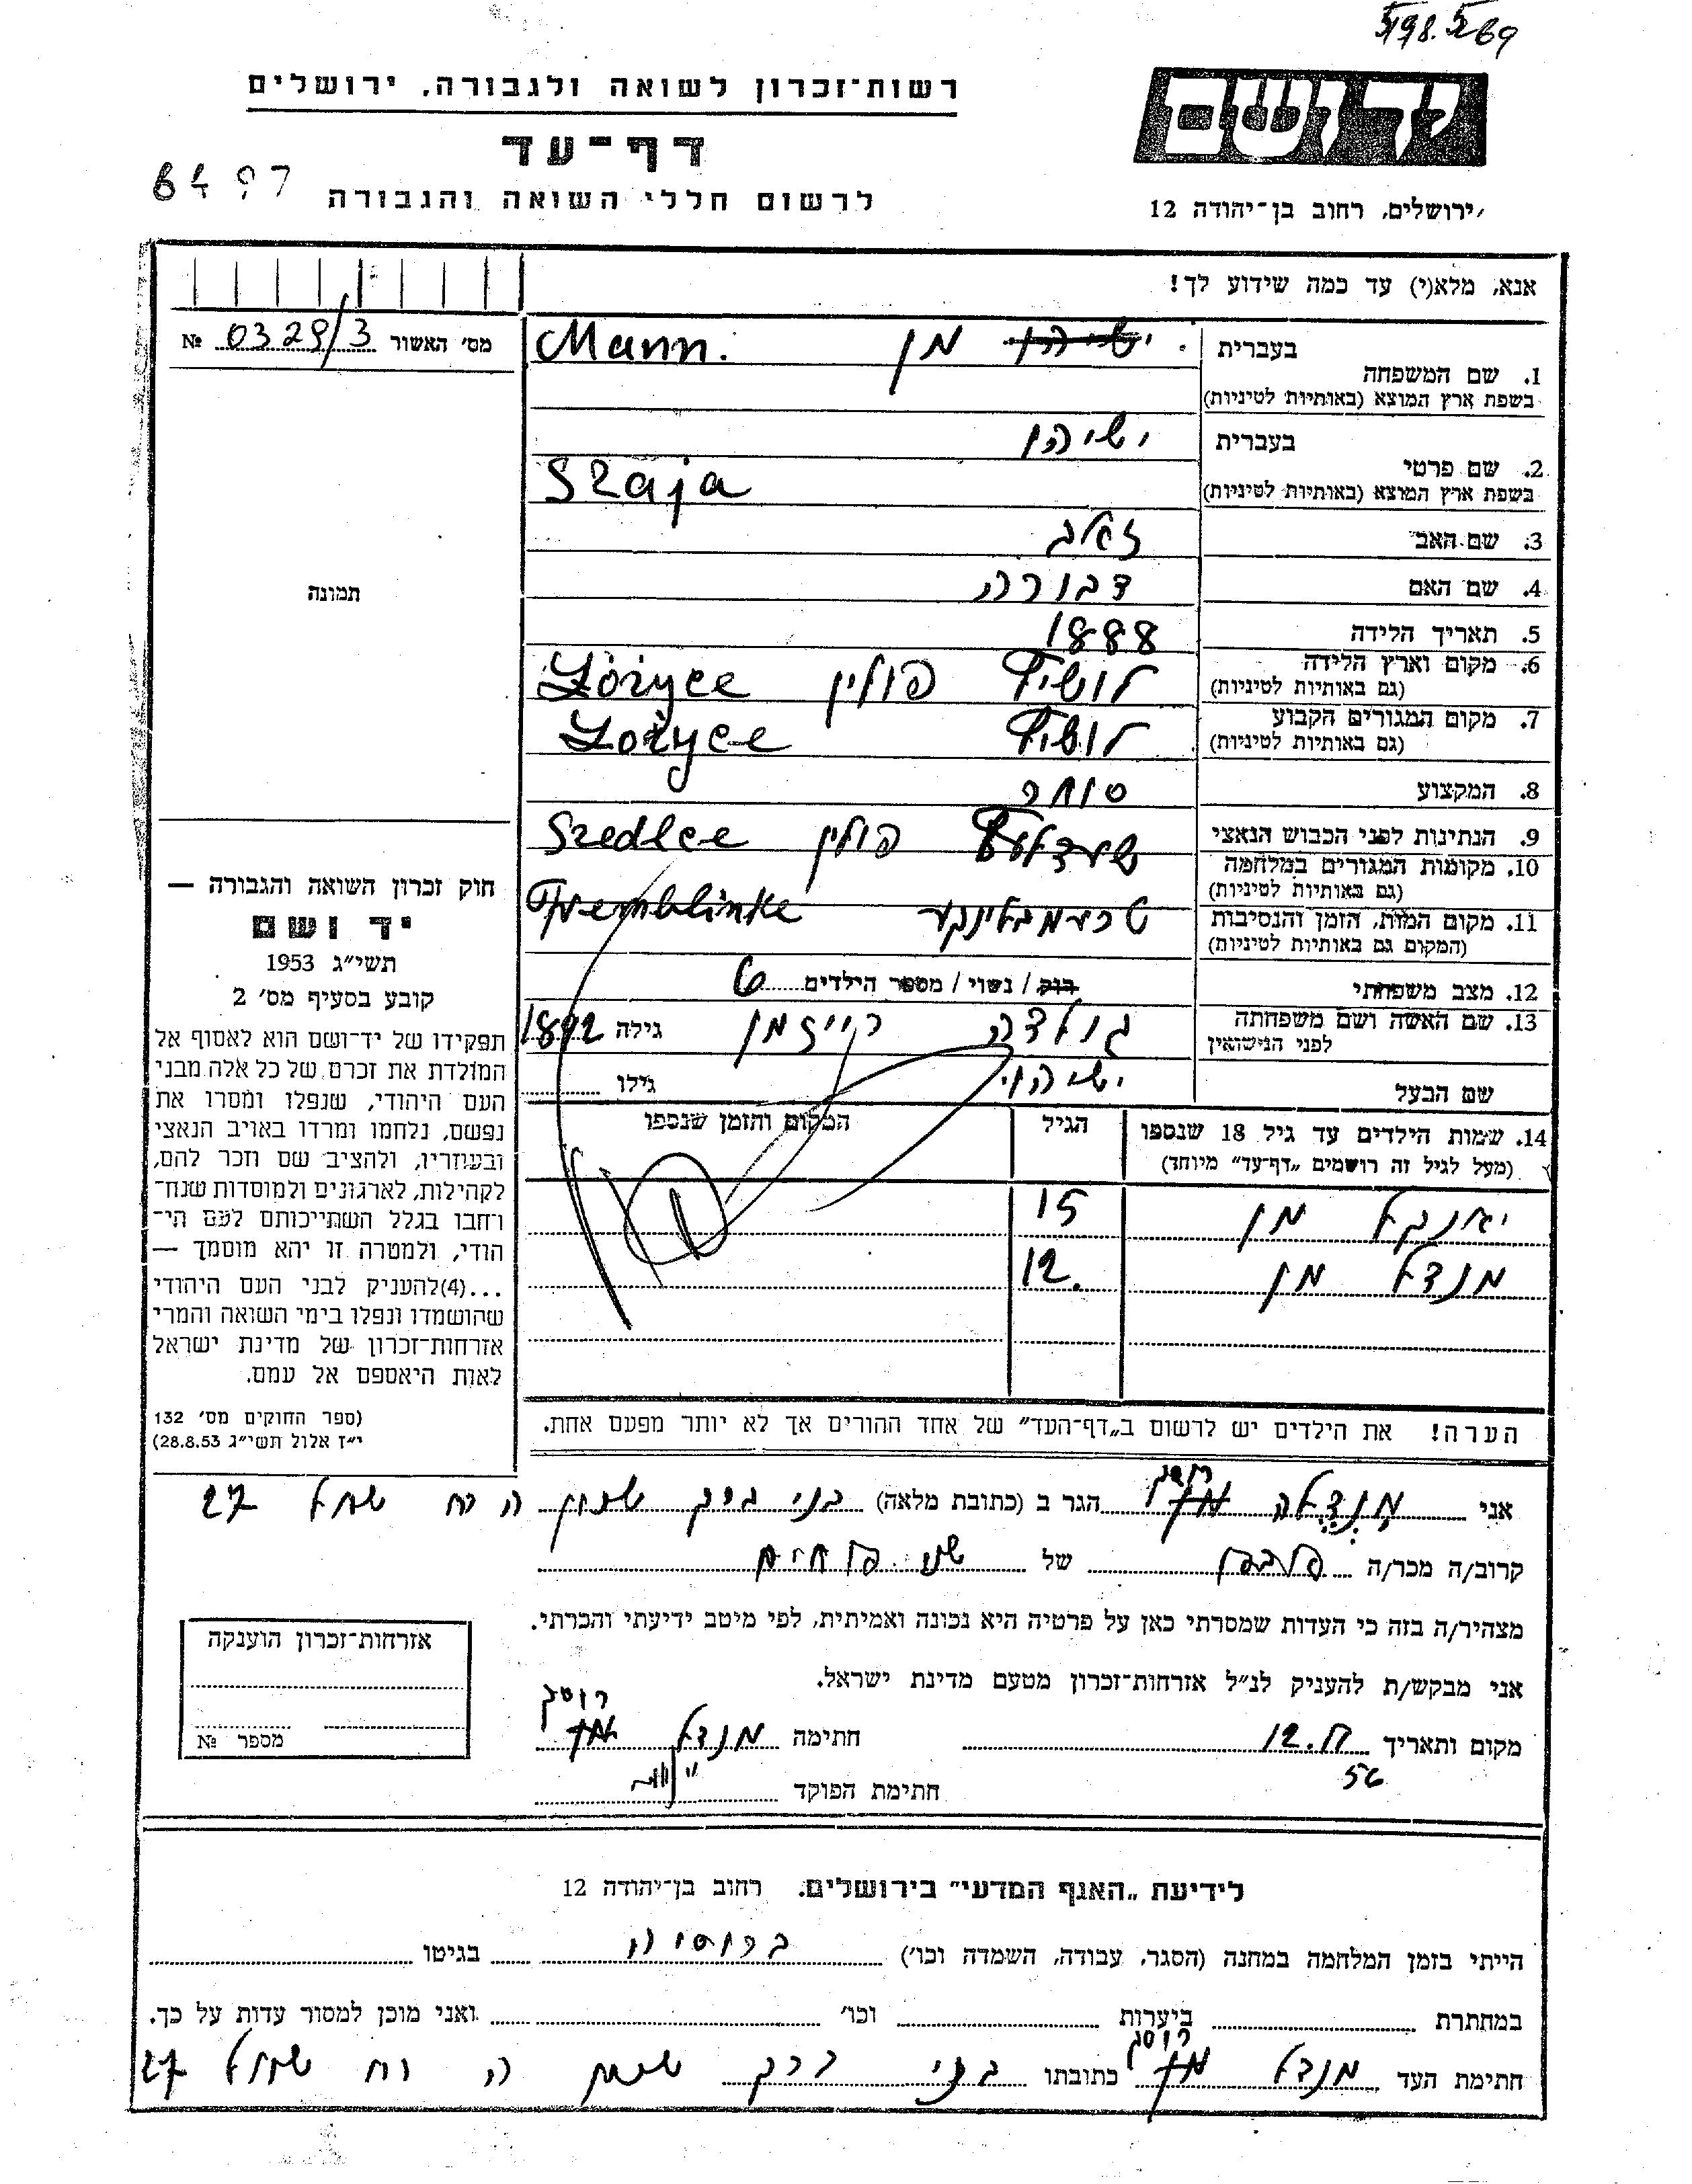 5198.569
רשות־זכרון לשואה ולגבורה, ירושלים
יד ושם
דף־עד
לרשום חללי השואה והגבורה
ירושלים, רחוב בן־יהודה 12
אנא, מלא(י) עד כמה שידוע לך!
מס׳ האשור 0329/3 №
בעברית ישיהו מן Mann.
1. שם המשפחה
בשפת ארץ המוצא (באותיות לטיניות)
בעברית ישיהו
2. שם פרטי
בשפת ארץ המוצא (באותיות לטיניות) Szaja
3. שם האב זאלב
4. שם האם דבורה
תמונה
5. תאריך הלידה 1888
6. מקום וארץ הלידה לושיץ פולין Łoziyce
(גם באותיות לטיניות)
7. מקום המגורים הקבוע לושיץ Łozyce
(גם באותיות לטיניות)
8. המקצוע סוחר
9. הנתינות לפני הכבוש הנאצי פולין
10. מקומות המגורים במלחמה שעדלעץ Szedlce
(גם באותיות לטיניות)
11. מקום המות, הזמן והנסיבות טרעמבלינקע Tremblinke
(המקום גם באותיות לטיניות)
12. מצב משפחתי רוק / נשוי / מספר הילדים 6
13. שם האשה ושם משפחתה גולדה רייזמן גילה 1892
לפני הנישואין
שם הבעל ישיהו גילו
14. שמות הילדים עד גיל 18 שנספו הגיל המקום והזמן שנספו
(מעל לגיל זה רושמים „דף־עד” מיוחד)
יאנקל מן 15
מנדל מן 12.
חוק זכרון השואה והגבורה —
יד ושם
תשי״ג 1953
קובע בסעיף מס׳ 2
תפקידו של יד־ושם הוא לאסוף אל
המולדת את זכרם של כל אלה מבני
העם היהודי, שנפלו ומסרו את
נפשם, נלחמו ומרדו באויב הנאצי
ובעוזריו, ולהציב שם וזכר להם,
לקהילות, לארגונים ולמוסדות שנח־
רחבו בגלל השתייכותם לעם הי־
הודי, ולמטרה זו יהא מוסמך —
...(4)להעניק לבני העם היהודי
שהושמדו ונפלו בימי השואה והמרי
אזרחות־זכרון של מדינת ישראל
לאות היאספם אל עמם.
(ספר החוקים מס׳ 132
י״ז אלול תשי״ג 28.8.53)
הערה! את הילדים יש לרשום ב„דף־העד” של אחד ההורים אך לא יותר מפעם אחת.
אני מנדלה מן הגר ב (כתובת מלאה) בני ברק שכון ה רח 27
קרוב/ה מכר/ה של
מצהיר/ה בזה כי העדות שמסרתי כאן על פרטיה היא נכונה ואמיתית, לפי מיטב ידיעתי והכרתי.
אני מבקש/ת להעניק לנ״ל אזרחות־זכרון מטעם מדינת ישראל.
מקום ותאריך 12. חתימה מנדל מן
56
חתימת הפוקד
אזרחות־זכרון הוענקה
מספר №
לידיעת „האגף המדעי” בירושלים. רחוב בן־יהודה 12
הייתי בזמן המלחמה במחנה (הסגר, עבודה, השמדה וכו׳) ברוסיה בגיטו
במחתרת ביערות וכו׳ ואני מוכן למסור עדות על כך.
חתימת העד מנדל מן כתובתו בני ברק שכון ה רח 27